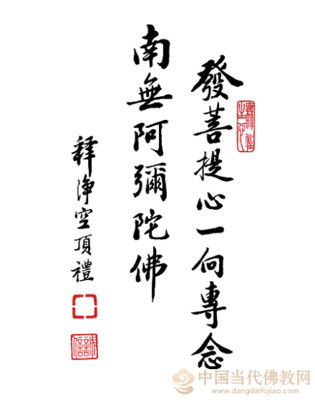 發菩提心一向專念
南無阿彌陀佛
釋淨空頂禮
中国当代佛教网
www.dangdaifojiao.com